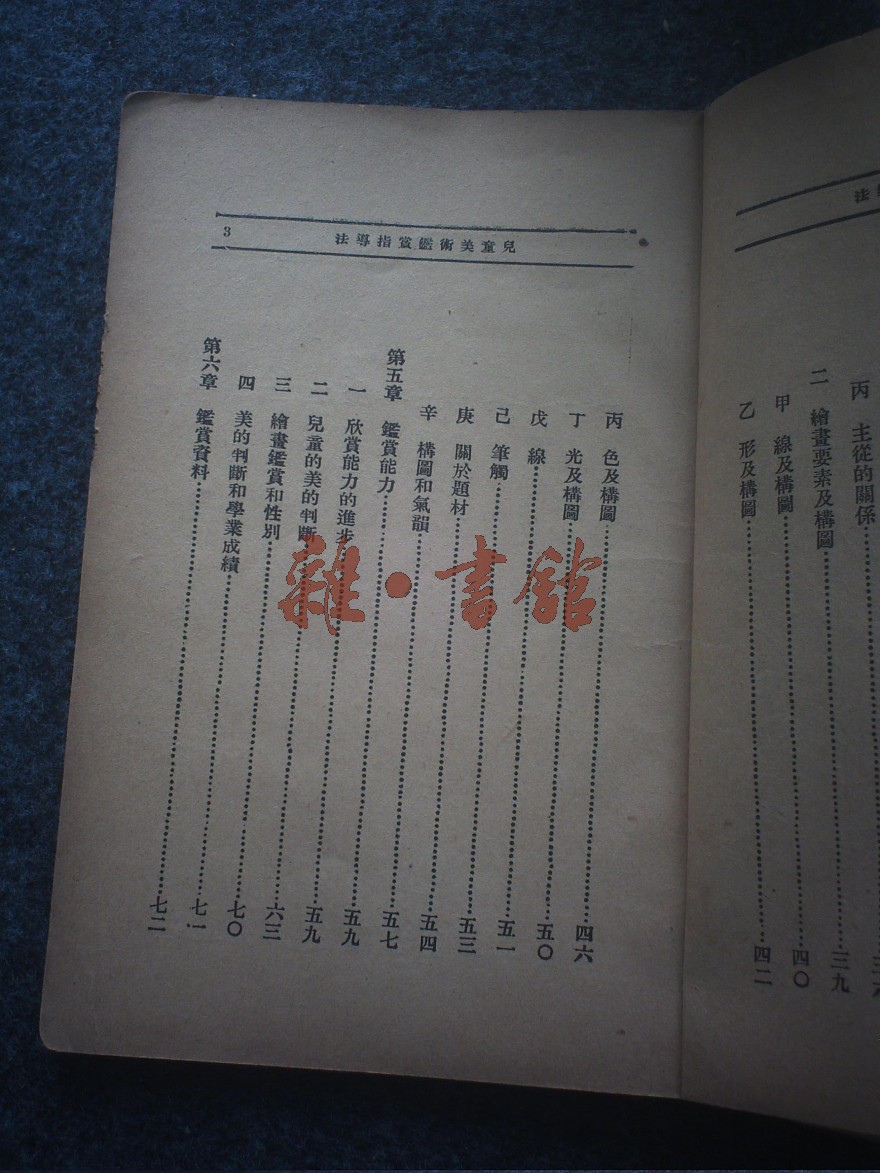 法
丙 主從的關係
二 繪畫要素及構圖……三九
甲 線及構圖……四〇
乙 形及構圖……四二
兒童美術鑑賞指導法
3
丙 色及構圖……四六
丁 光及構圖……五〇
戊 線……五一
己 筆觸……五三
庚 關於題材……五四
辛 構圖和氣韻……五七
第五章 鑑賞能力……五九
一 欣賞能力的進步……五九
二 兒童的美的判斷……六三
三 繪畫鑑賞和性別……七〇
四 美的判斷和學業成績……七一
第六章 鑑賞資料……七二
雜·書館